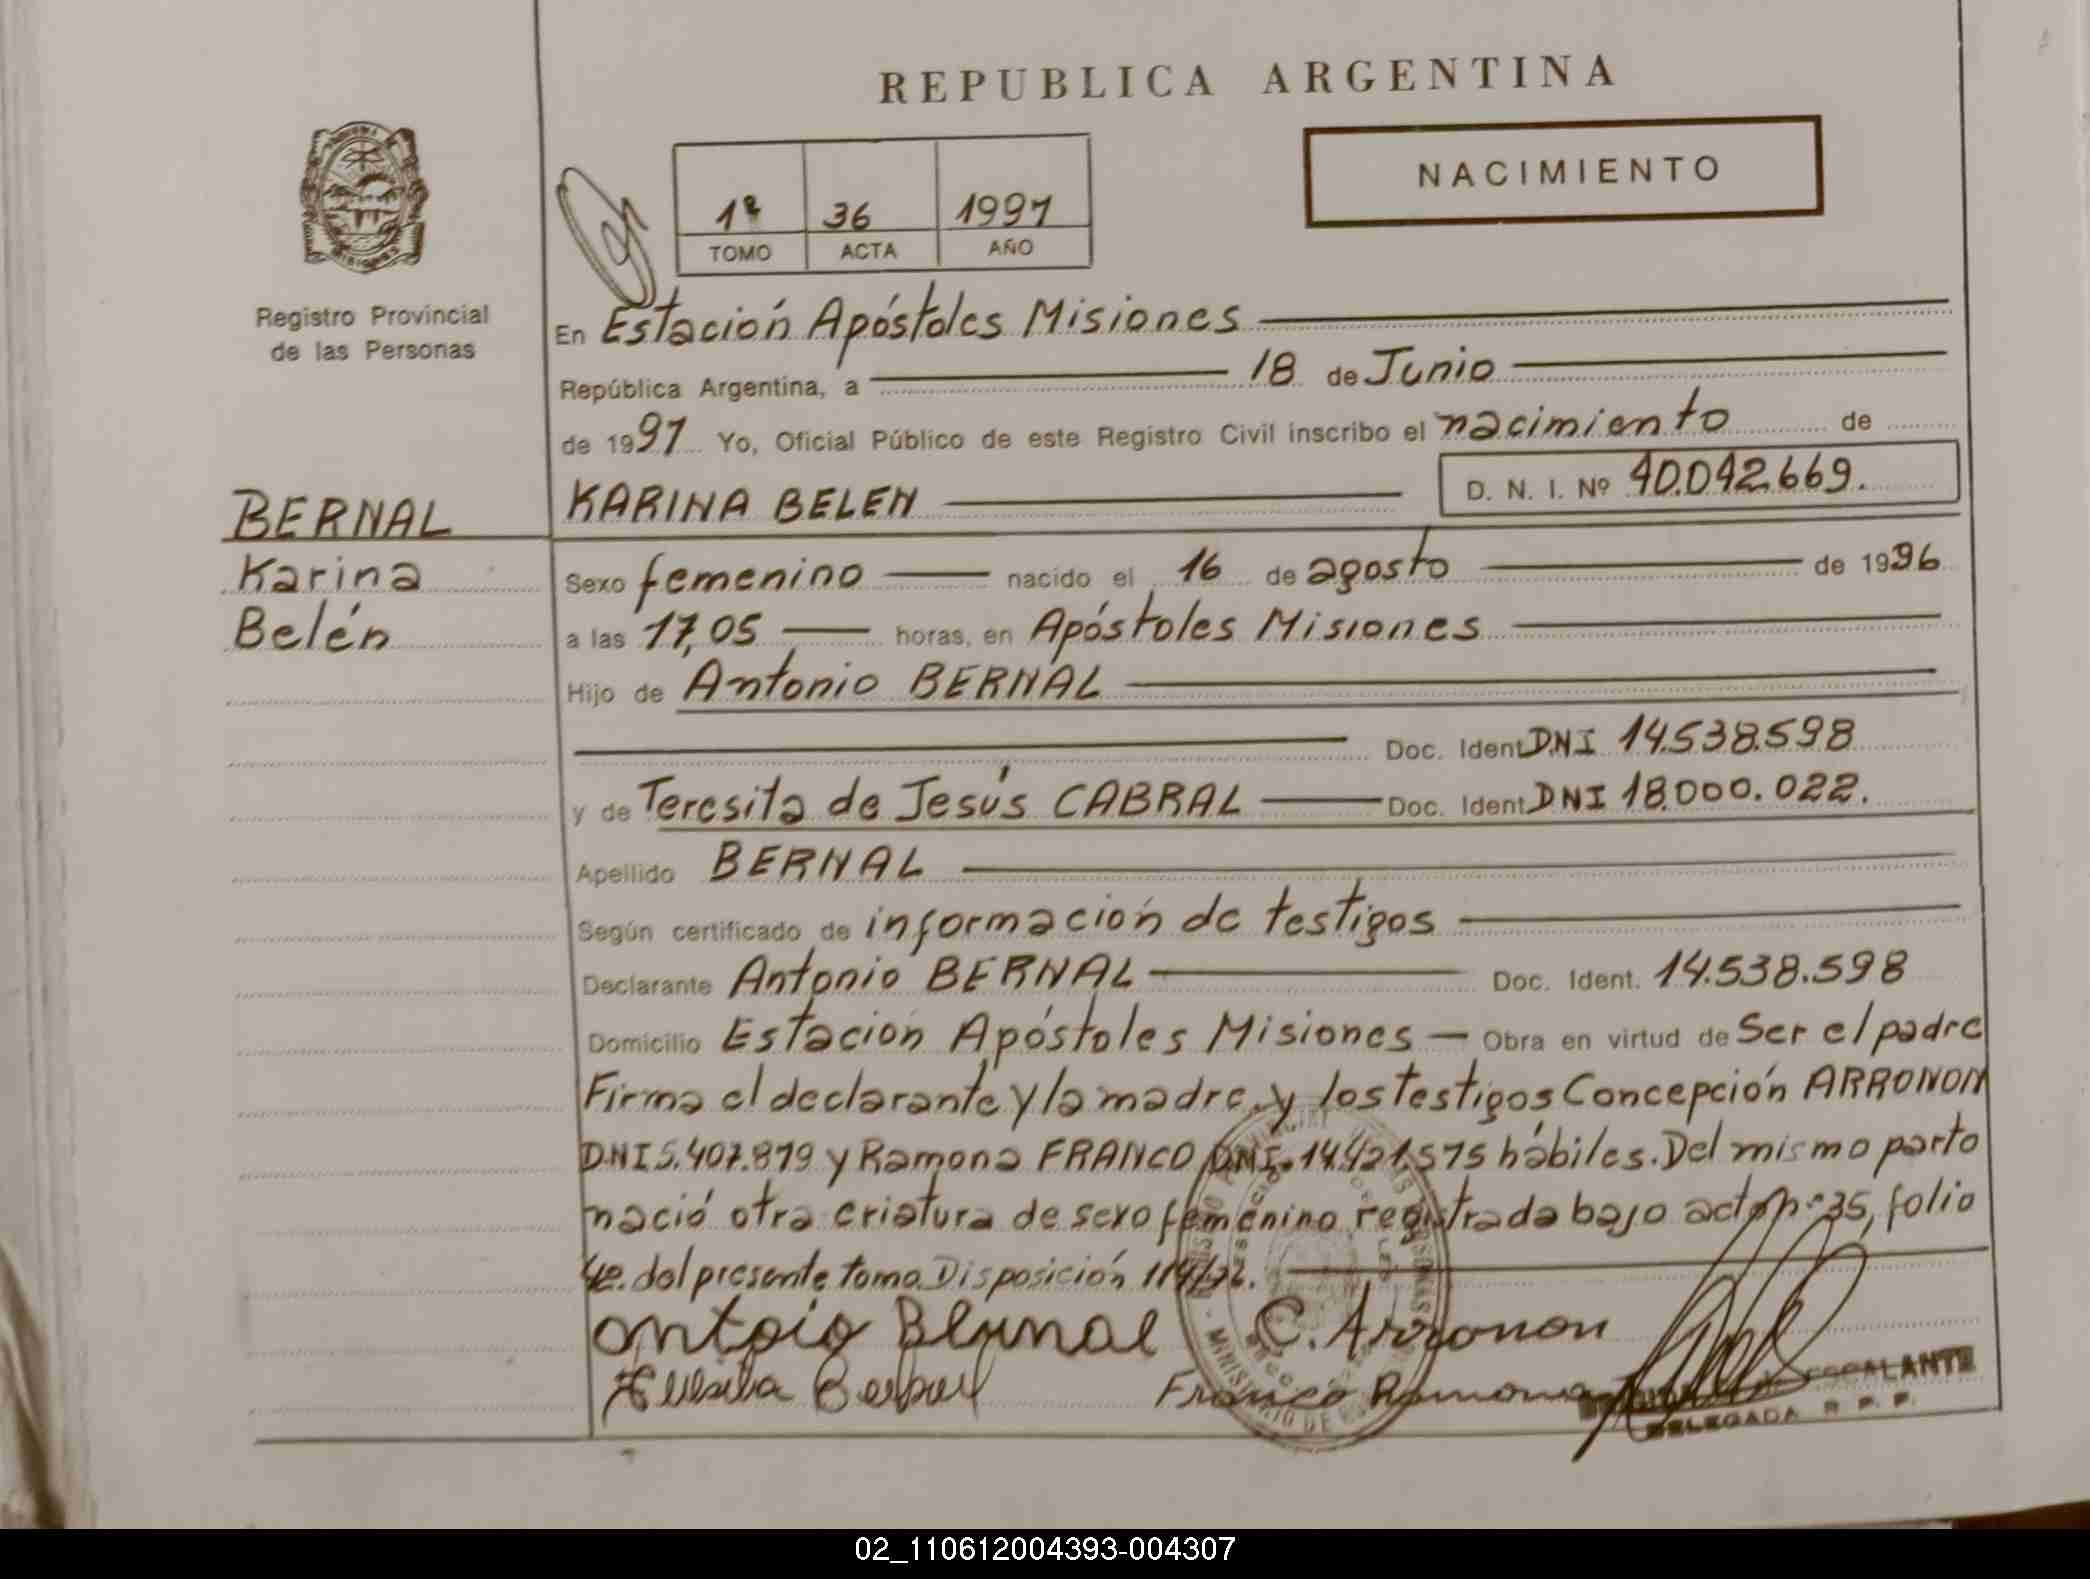 REPUBLICA ARGENTINA
NACIMIENTO
1º 36 1997
TOMO ACTA AÑO
MISIONES
Registro Provincial
de las Personas
En Estación Apóstoles Misiones
República Argentina, a 18 de Junio
de 1997 Yo, Oficial Público de este Registro Civil inscribo el nacimiento de
KARINA BELEN D. N. I. Nº 40.042.669.
BERNAL
Karina
Belén
Sexo femenino nacido el 16 de agosto de 1996
a las 17,05 horas, en Apóstoles Misiones
Hijo de Antonio BERNAL
Doc. Ident. DNI 14.538.598
y de Teresita de Jesús CABRAL Doc. Ident. DNI 18.000.022.
Apellido BERNAL
Según certificado de información de testigos
Declarante Antonio BERNAL Doc. Ident. 14.538.598
Domicilio Estación Apóstoles Misiones — Obra en virtud de Ser el padre
Firma el declarante y la madre, y los testigos Concepción ARRONON
DNI 5.407.879 y Ramona FRANCO DNI. 14.421.575 hábiles. Del mismo parto
nació otra criatura de sexo femenino registrada bajo acta nº 35, folio
del presente tomo. Disposición
C. Arronon
Franco Ramona
ESCALANTE
DELEGADA R. P. P.
02_110612004393-004307